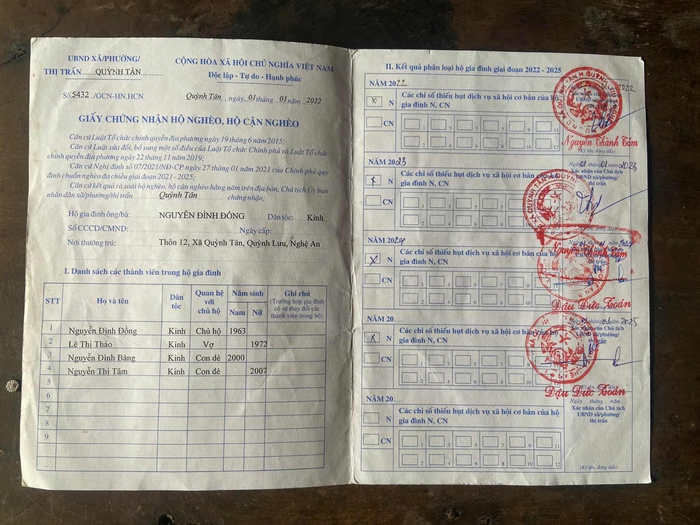 UBND XÃ/PHƯỜNG/
THỊ TRẤN QUỲNH TÂN
CỘNG HÒA XÃ HỘI CHỦ NGHĨA VIỆT NAM
Độc lập - Tự do - Hạnh phúc
Số 5432 /GCN-HN.HCN
Quỳnh Tân, ngày 01 tháng 01 năm 2022
GIẤY CHỨNG NHẬN HỘ NGHÈO, HỘ CẬN NGHÈO
Căn cứ Luật Tổ chức chính quyền địa phương ngày 19 tháng 6 năm 2015;
Căn cứ Luật sửa đổi, bổ sung một số điều của Luật Tổ chức Chính phủ và Luật Tổ chức
chính quyền địa phương ngày 22 tháng 11 năm 2019;
Căn cứ Nghị định số 07/2021/NĐ-CP ngày 27 tháng 01 năm 2021 của Chính phủ quy
định chuẩn nghèo đa chiều giai đoạn 2021 - 2025;
Căn cứ kết quả rà soát hộ nghèo, hộ cận nghèo hằng năm trên địa bàn, Chủ tịch Ủy ban
nhân dân xã/phường/thị trấn Quỳnh Tân chứng nhận:
Hộ gia đình ông/bà: NGUYỄN ĐÌNH ĐỒNG Dân tộc: Kinh
Số CCCD/CMND: Ngày cấp:
Nơi thường trú: Thôn 12, Xã Quỳnh Tân, Quỳnh Lưu, Nghệ An
I. Danh sách các thành viên trong hộ gia đình
STT Họ và tên Dân tộc Quan hệ với chủ hộ Năm sinh Nam Nữ Ghi chú
(Trường hợp gia đình có sự thay đổi các thành viên trong hộ)
1 Nguyễn Đình Đồng Kinh Chủ hộ 1963
2 Lê Thị Thảo Kinh Vợ 1972
3 Nguyễn Đình Bảng Kinh Con đẻ 2000
4 Nguyễn Thị Tâm Kinh Con đẻ 2007
5
6
7
8
9
...
II. Kết quả phân loại hộ gia đình giai đoạn 2022 - 2025
NĂM 2022
N x Các chỉ số thiếu hụt dịch vụ xã hội cơ bản của hộ
CN gia đình N, CN
1 3 5 7 9 11
2 4 6 8 10 12
Nguyễn Thành Tâm
NĂM 2023
N x Các chỉ số thiếu hụt dịch vụ xã hội cơ bản của hộ
CN gia đình N, CN
1 3 5 7 9 11
2 4 6 8 10 12
Xác nhận của Chủ tịch
UBND xã/phường/
thị trấn
Nguyễn Thành Tâm
NĂM 2024
N x Các chỉ số thiếu hụt dịch vụ xã hội cơ bản của hộ
CN gia đình N, CN
1 3 5 7 9 11
2 4 6 8 10 12
Đậu Đức Toàn
NĂM 20
N x Các chỉ số thiếu hụt dịch vụ xã hội cơ bản của hộ
CN gia đình N, CN
1 3 5 7 9 11
2 4 6 8 10 12
Đậu Đức Toàn
NĂM 20
N Các chỉ số thiếu hụt dịch vụ xã hội cơ bản của hộ
CN gia đình N, CN
1 3 5 7 9 11
2 4 6 8 10 12
Ngày tháng năm
Xác nhận của Chủ tịch
UBND xã/phường/
thị trấn
(Ký tên, đóng dấu)